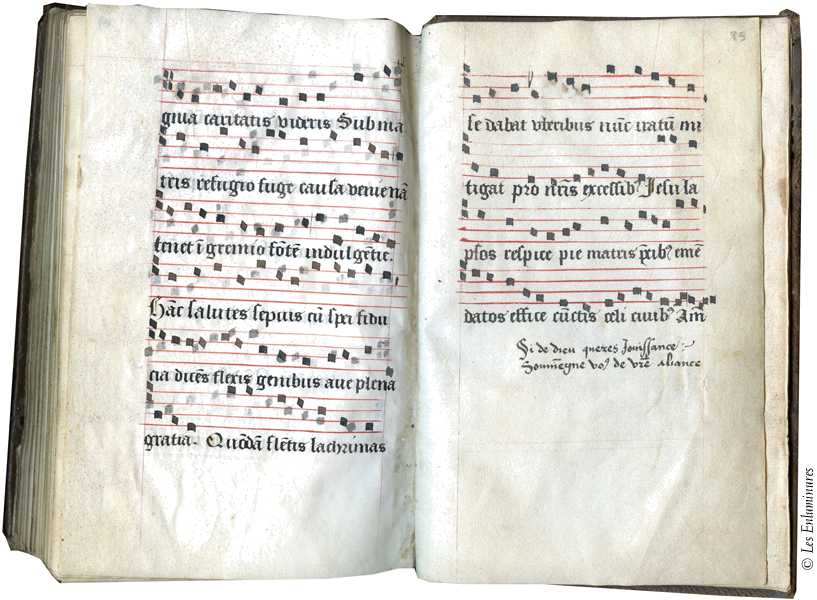 gnia caritatis videris Sub ma
tris refugio fuge causa veniẽ nã
tenet ĩ gremio fõtẽ indulgẽtie.
Hãc salutes sepius cũ spei fidu
cia dicẽs flexis genibus ave plena
gratia. Quõdã flẽtis lachrimas
85
se dabat vberibus nũc natũ mi
tigat pro nr̃is excessibꝰ Jesu la
psos respice pie matris p̃cibꝰ emẽ
datos effice cũctis celi civibꝰ Am̃
Si de dieu queres Jouissance
Souviẽgne voꝰ de vr̃e aliance
© Les Enluminures